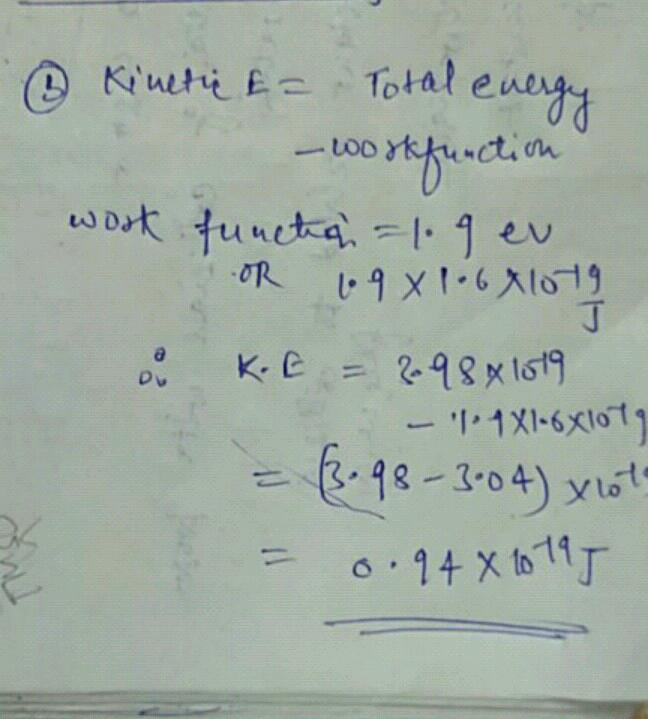 ③ Kinetic E = Total energy
- workfunction
work function = 1.9 ev
OR 1.9 X 1.6 X 10-19 J
∴ K.E = 3.98 X 10-19
- 1.9 X 1.6 X 10-19
= (3.98 - 3.04) X 10-19
= 0.94 X 10-19 J